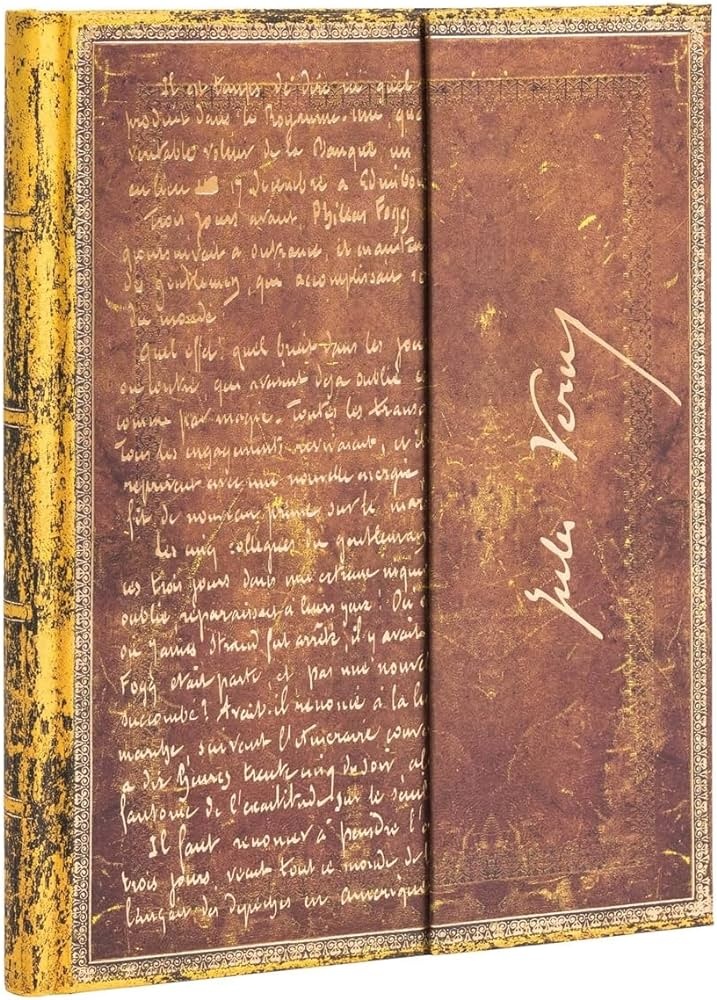 Il est temps de dire ici quel
produit dans le Royaume-Uni, qua
véritable voleur de la Banque, un
eu lieu le 17 Décembre à Edimbou
Trois jours avant, Phileas Fogg
poursuivait à outrance, et mainten
de gentleman, qui accomplissait
du monde.
Quel effet, quel bruit dans les jour
ou contre, qui avaient déjà oublié
comme par magie. Toutes les transa
Tous les engagements revivaient, et il
reprirent avec une nouvelle énergie
fit de nouveau prime sur le mar
Les cinq collègues du gentleman
ces trois jours dans une certaine inqui
oublié reparaissait à leurs yeux! Où
où James Strand fut arrêté, il y avait
Fogg était parti, et pas une nouve
succombé? Avait-il renoncé à la lu
marche, suivant l'itinéraire conve
à dix heures trente cinq du soir,
fantôme de l'exactitude, sur le seuil
Il faut renoncer à peindre l'a
trois jours, vécut tout ce monde de
lança des dépêches en Amérique
Jules Verne